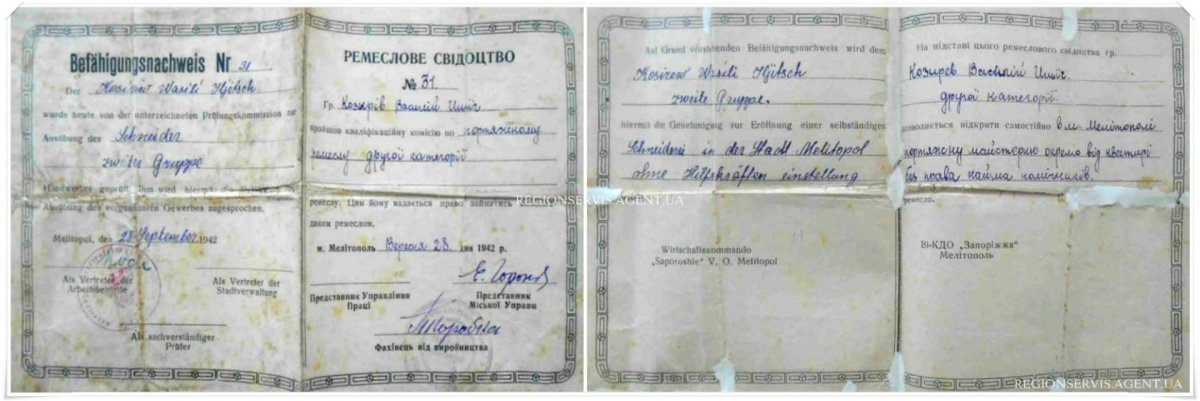 Befähigungsnachweis Nr 31
Der Kosirew Wasili Iljitsch
wurde heute von der unterzeichneten Prüfungskommission zur
Ausübung des Schneider
zweite Gruppe
Handwerkes geprüft. Ihm wird hiermit die
Ausübung des vorgenannten Gewerbes zugesprochen.
Melitopol, den 28 September 1942
Als Vertreter der
Arbeitsbehörde
Als Vertreter der
Stadtverwaltung
Als sachverständiger
Prüfer
РЕМЕСЛОВЕ СВІДОЦТВО
№ 31
Гр. Козирів Василій Ілліч
пройшов кваліфікаційну комісію по портяжному
ремеслу другої категорії
ремеслу. Цим йому надається право займатись
даним ремеслом.
м. Мелітополь Вересня 28 дня 1942 р.
Представник Управління
Праці
Представник
Міської Управи
Фахівець від виробництва
Auf Grund vorstehenden Befähigungsnachweis wird dem
Kosirew Wasili Iljitsch
zweite Gruppe.
hiermit die Genehmigung zur Eröffnung einer selbständigen
Schneiderei in der Stadt Melitopol
ohne Hilfskräften einstellung
Wirtschaftskommando
„Saporoshie" V. O. Melitopol
На підставі цього ремеслового свідоцтва гр.
Козирев Василій Ілліч
другої категорії
дозволяється відкрити самостійно в м. Мелітополі
портяжну майстерню окремо від квартирі
без права найма помічників.
ремесло.
Ві-КДО „Запоріжжя"
Мелітополь
REGIONSERVIS.AGENT.UA
REGIONSERVIS.AGENT.UA